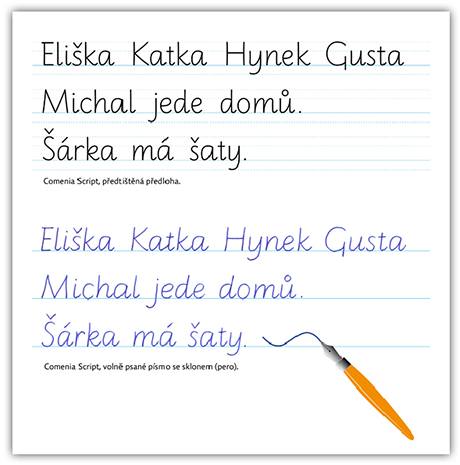 Eliška Katka Hynek Gusta
Michal jede domů.
Šárka má šaty.
Comenia Script, předtištěná předloha.
Eliška Katka Hynek Gusta
Michal jede domů.
Šárka má šaty.
Comenia Script, volně psané písmo se sklonem (pero).